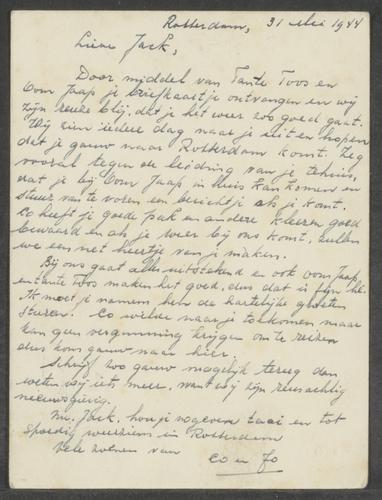 Rotterdam, 31 Mei 1944
Lieve Jack,
Door middel van Tante Toos en
Oom Jaap je briefkaartje ontvangen en wij
zijn reuze blij, dat je het weer zoo goed gaat.
Wij zien iedere dag naar je uit en hopen
dat je gauw naar Rotterdam komt. Zeg
vooral tegen de leiding van je tehuis,
dat je bij Oom Jaap in huis kan komen en
stuur van te voren een berichtje als je komt.
Co heeft je goede pak en andere kleeren goed
bewaard en als je weer bij ons komt, zullen
we een net heertje van je maken.
Bij ons gaat alles uitstekend en ook oom Jaap
en tante Toos maken het goed, dus dat is fijn hè.
Ik moet je namens heb de hartelijke groeten
sturen. Co wilde naar je toekomen maar
kan geen vergunning krijgen om te reizen
dus kom gauw naar hier.
Schrijf zoo gauw mogelijk terug dan
weten wij iets meer, want wij zijn reusachtig
nieuwsgierig.
Nu, Jack, hou je nog even taai en tot
spoedig weerziens in Rotterdam
Vele zoenen van
Co en Jo